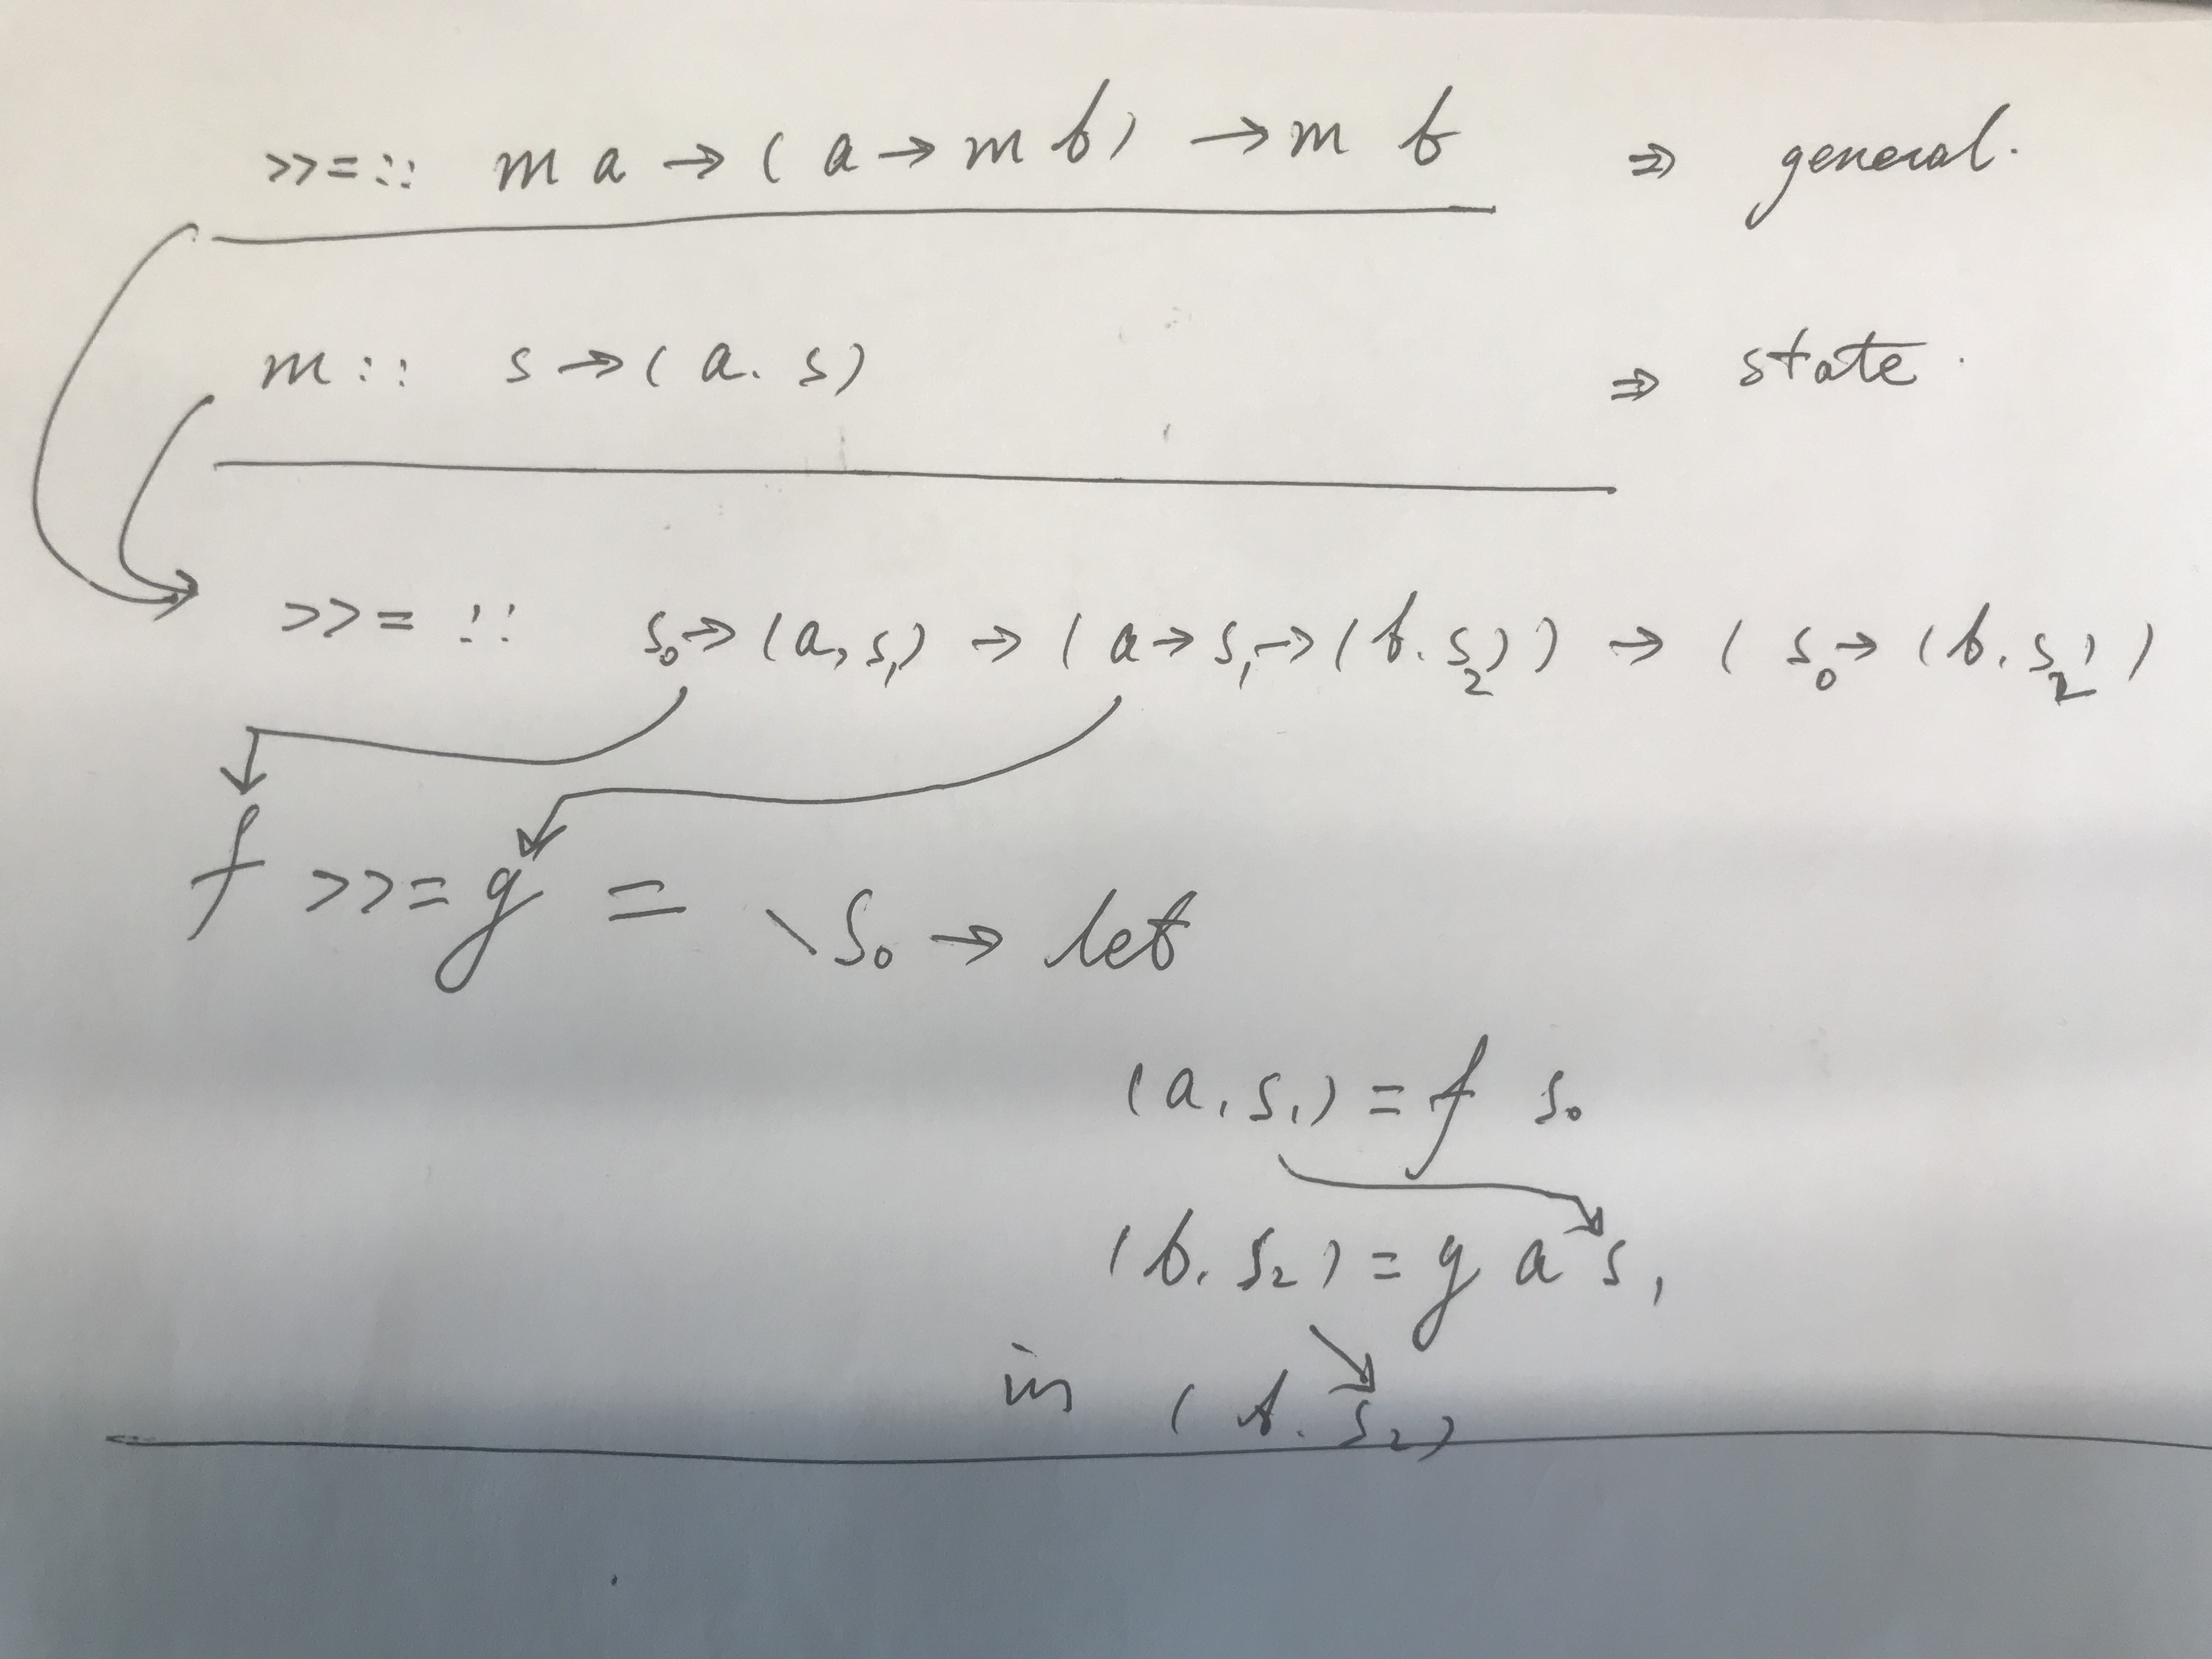 >>= :: m a → ( a → m b ) → m b ⇒ general.
m :: s → ( a. s ) ⇒ state.
>>= :: s₀ → ( a, s₁ ) → ( a → s₁ → ( b. s₂ ) ) → ( s₀ → ( b. s₂ ) )
f >>= g = \s₀ → let
( a, s₁ ) = f s₀
( b. s₂ ) = g a s₁
in ( b. s₂ )